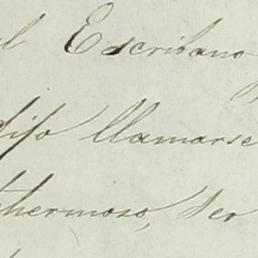 el Escribano
dijo llamarse
hermoso, ser